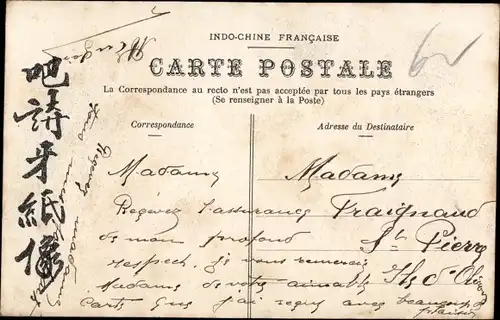 INDO-CHINE FRANÇAISE
CARTE POSTALE
La Correspondance au recto n'est pas acceptée par tous les pays étrangers
(Se renseigner à la Poste)
Correspondance
Adresse du Destinataire
Madame
Recevez l'assurance
de mon profond
respect. je vous remercie
Madame de votre aimable
carte que j'ai reçu avec beaucoup de
plaisir
Madame
Fraignaud
St Pierre
Ile d'Oléron
吧
牙
紙